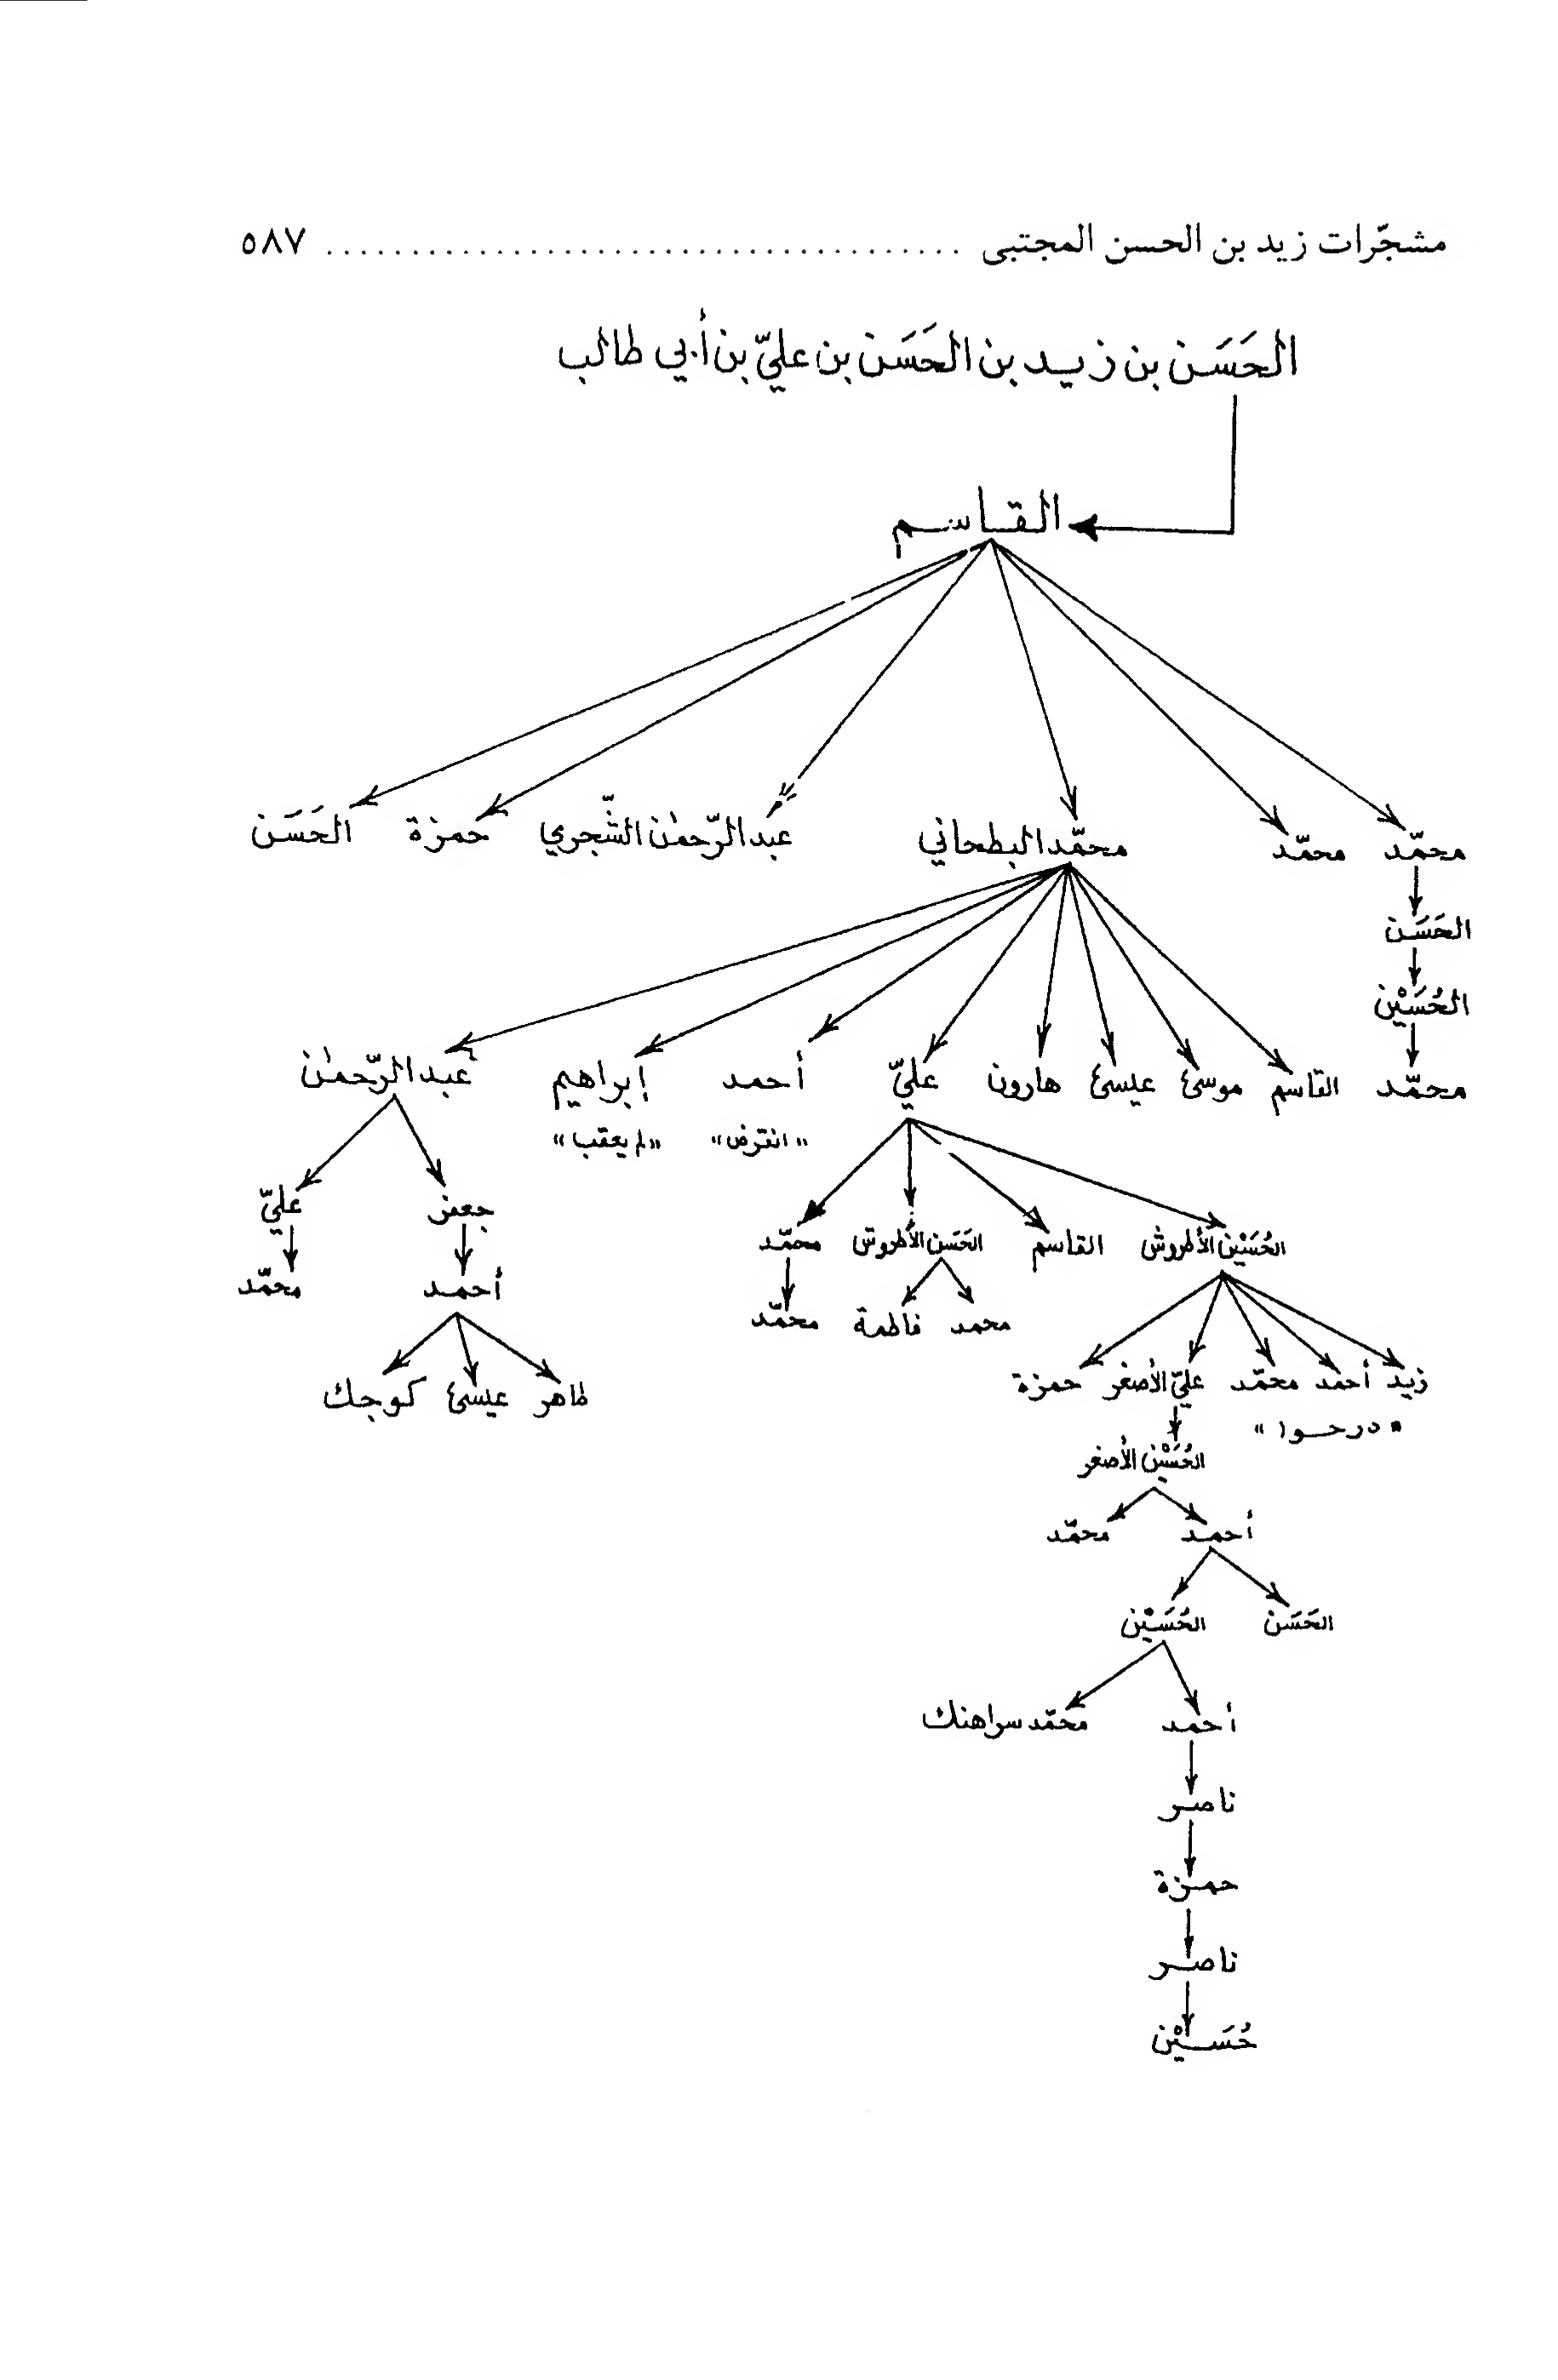 مشجّرات زيد بن الحسن المجتبى ........................................ ٥٨٧
الحَسَن بن زيد بن الحَسَن بن عليّ بن أبي طالب
القاسم
محمّد محمّد محمّد البطحاني عبد الرّحمٰن الشّجري حمزة الحَسَن
الحَسَن
الحُسَيْن
محمّد القاسم موسىٰ عيسىٰ هارون عليّ أحمد إبراهيم عبد الرّحمٰن
«انقرض» «لم يعقب»
جعفر عليّ
الحُسَيْن الأطروش القاسم الحَسَن الأطروش محمّد
أحمد محمّد
محمد فاطمة محمّد
زيد أحمد محمّد عليّ الأصغر حمزة
طاهر عيسىٰ كوجك
«درجوا»
الحُسَيْن الأصغر
أحمد محمّد
الحَسَن الحُسَيْن
أحمد محمّد سراهنك
ناصر
حمزة
ناصر
حُسَيْن